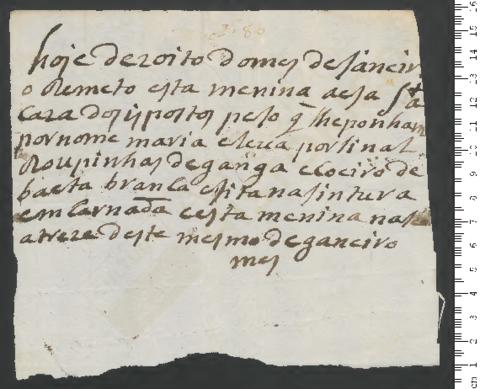 hoje dezoito do mes de Janeir
o Remeto esta menina a esa Sta
Caza dos ispostos peso q̃ lheponham
por nome maria eleva por sinal
Roupinhas de ganga e Coeiro de
baeta branca e fita na sintura
emcarnada e esta menina nas
a treze deste mesmo de ganeiro
mes